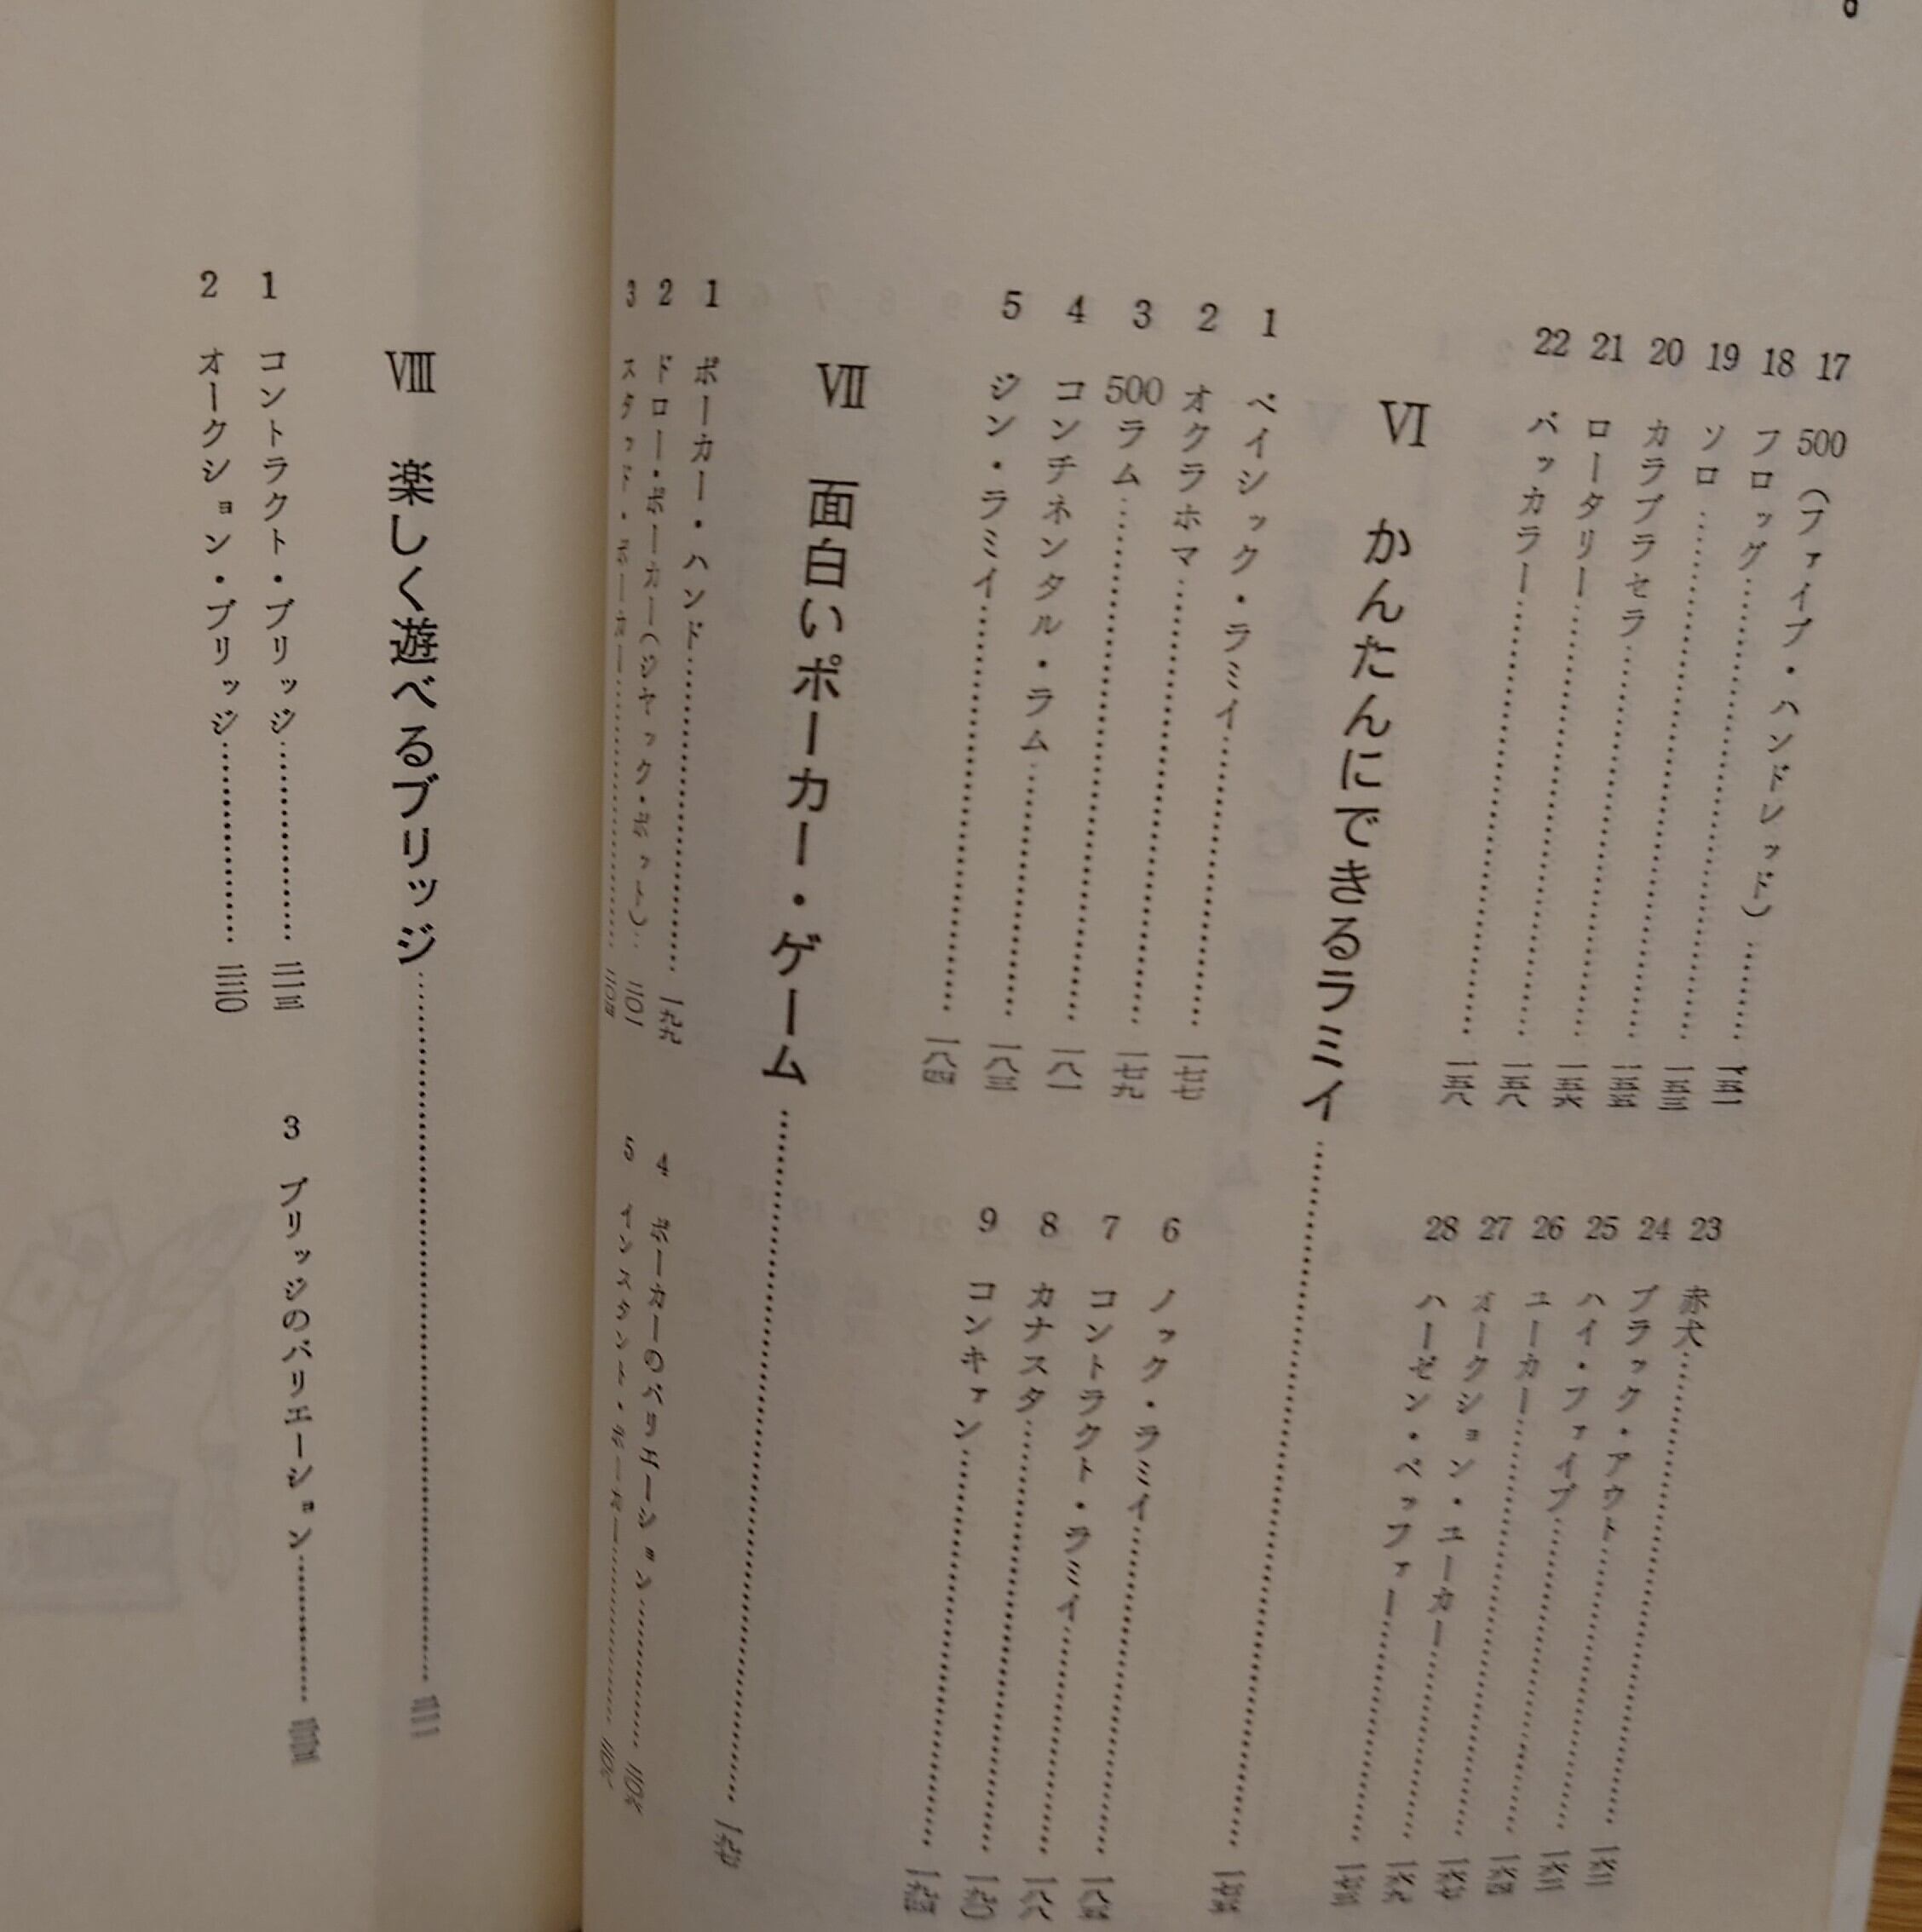 17 500(ファイブ・ハンドレッド)………一五一
18 フロッグ………一五一
19 ソロ………一五三
20 カラブラセラ………一五五
21 ロータリー………一五六
22 バッカラー………一五八
23 赤犬………
24 ブラック・アウト………
25 ハイ・ファイブ………
26 ユーカー………
27 オークション・ユーカー………
28 ハーゼン・ペッファー………
Ⅵ かんたんにできるラミイ………
1 ベイシック・ラミイ………
2 オクラホマ………一七七
3 500ラム………一七九
4 コンチネンタル・ラム………一八一
5 ジン・ラミイ………一八四
6 ノック・ラミイ………
7 コントラクト・ラミイ………
8 カナスタ………
9 コンキァン………
Ⅶ 面白いポーカー・ゲーム………
1 ポーカー・ハンド………一九九
2 ドロー・ポーカー(ジャック・ポット)…二〇一
3 スタッド・ポーカー………二〇四
4 ポーカーのバリエーション………
5 インスタント・ポーカー………
Ⅷ 楽しく遊べるブリッジ………
1 コントラクト・ブリッジ………二一三
2 オークション・ブリッジ………
3 ブリッジのバリエーション………